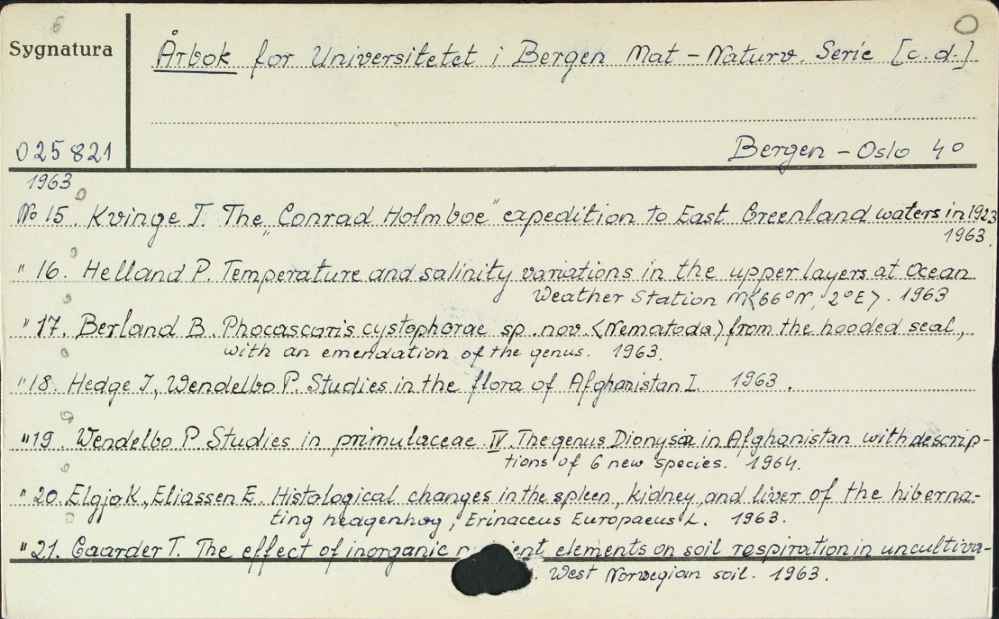 6
Sygnatura
Årbok for Universitetet i Bergen Mat – Naturv. Serie [c.d.]
O
025821
Bergen – Oslo 4o
1963
No 15. Kvinge T. The „Conrad Holmboe" expedition to East Greenland waters in 1923
1963.
" 16. Helland P. Temperature and salinity variations in the upper layers at Ocean
Weather Station M(66°N, 2°E). 1963
" 17. Berland B. Phocascaris cystophorae sp. nov. (Nematoda) from the hooded seal,
with an emendation of the genus. 1963.
" 18. Hedge I., Wendelbo P. Studies in the flora of Afghanistan I 1963.
" 19. Wendelbo P. Studies in primulaceae IV. The genus Dionysia in Afghanistan with descrip-
tions of 6 new species. 1964.
" 20. Elgjo K., Eliassen E. Histological changes in the spleen, kidney and liver of the hiberna-
ting hedgenhog, Erinaceus Europaeus L. 1963.
" 21. Gaarder T. The effect of inorganic elements on soil respiration in uncultiva-
West Norwegian soil. 1963.